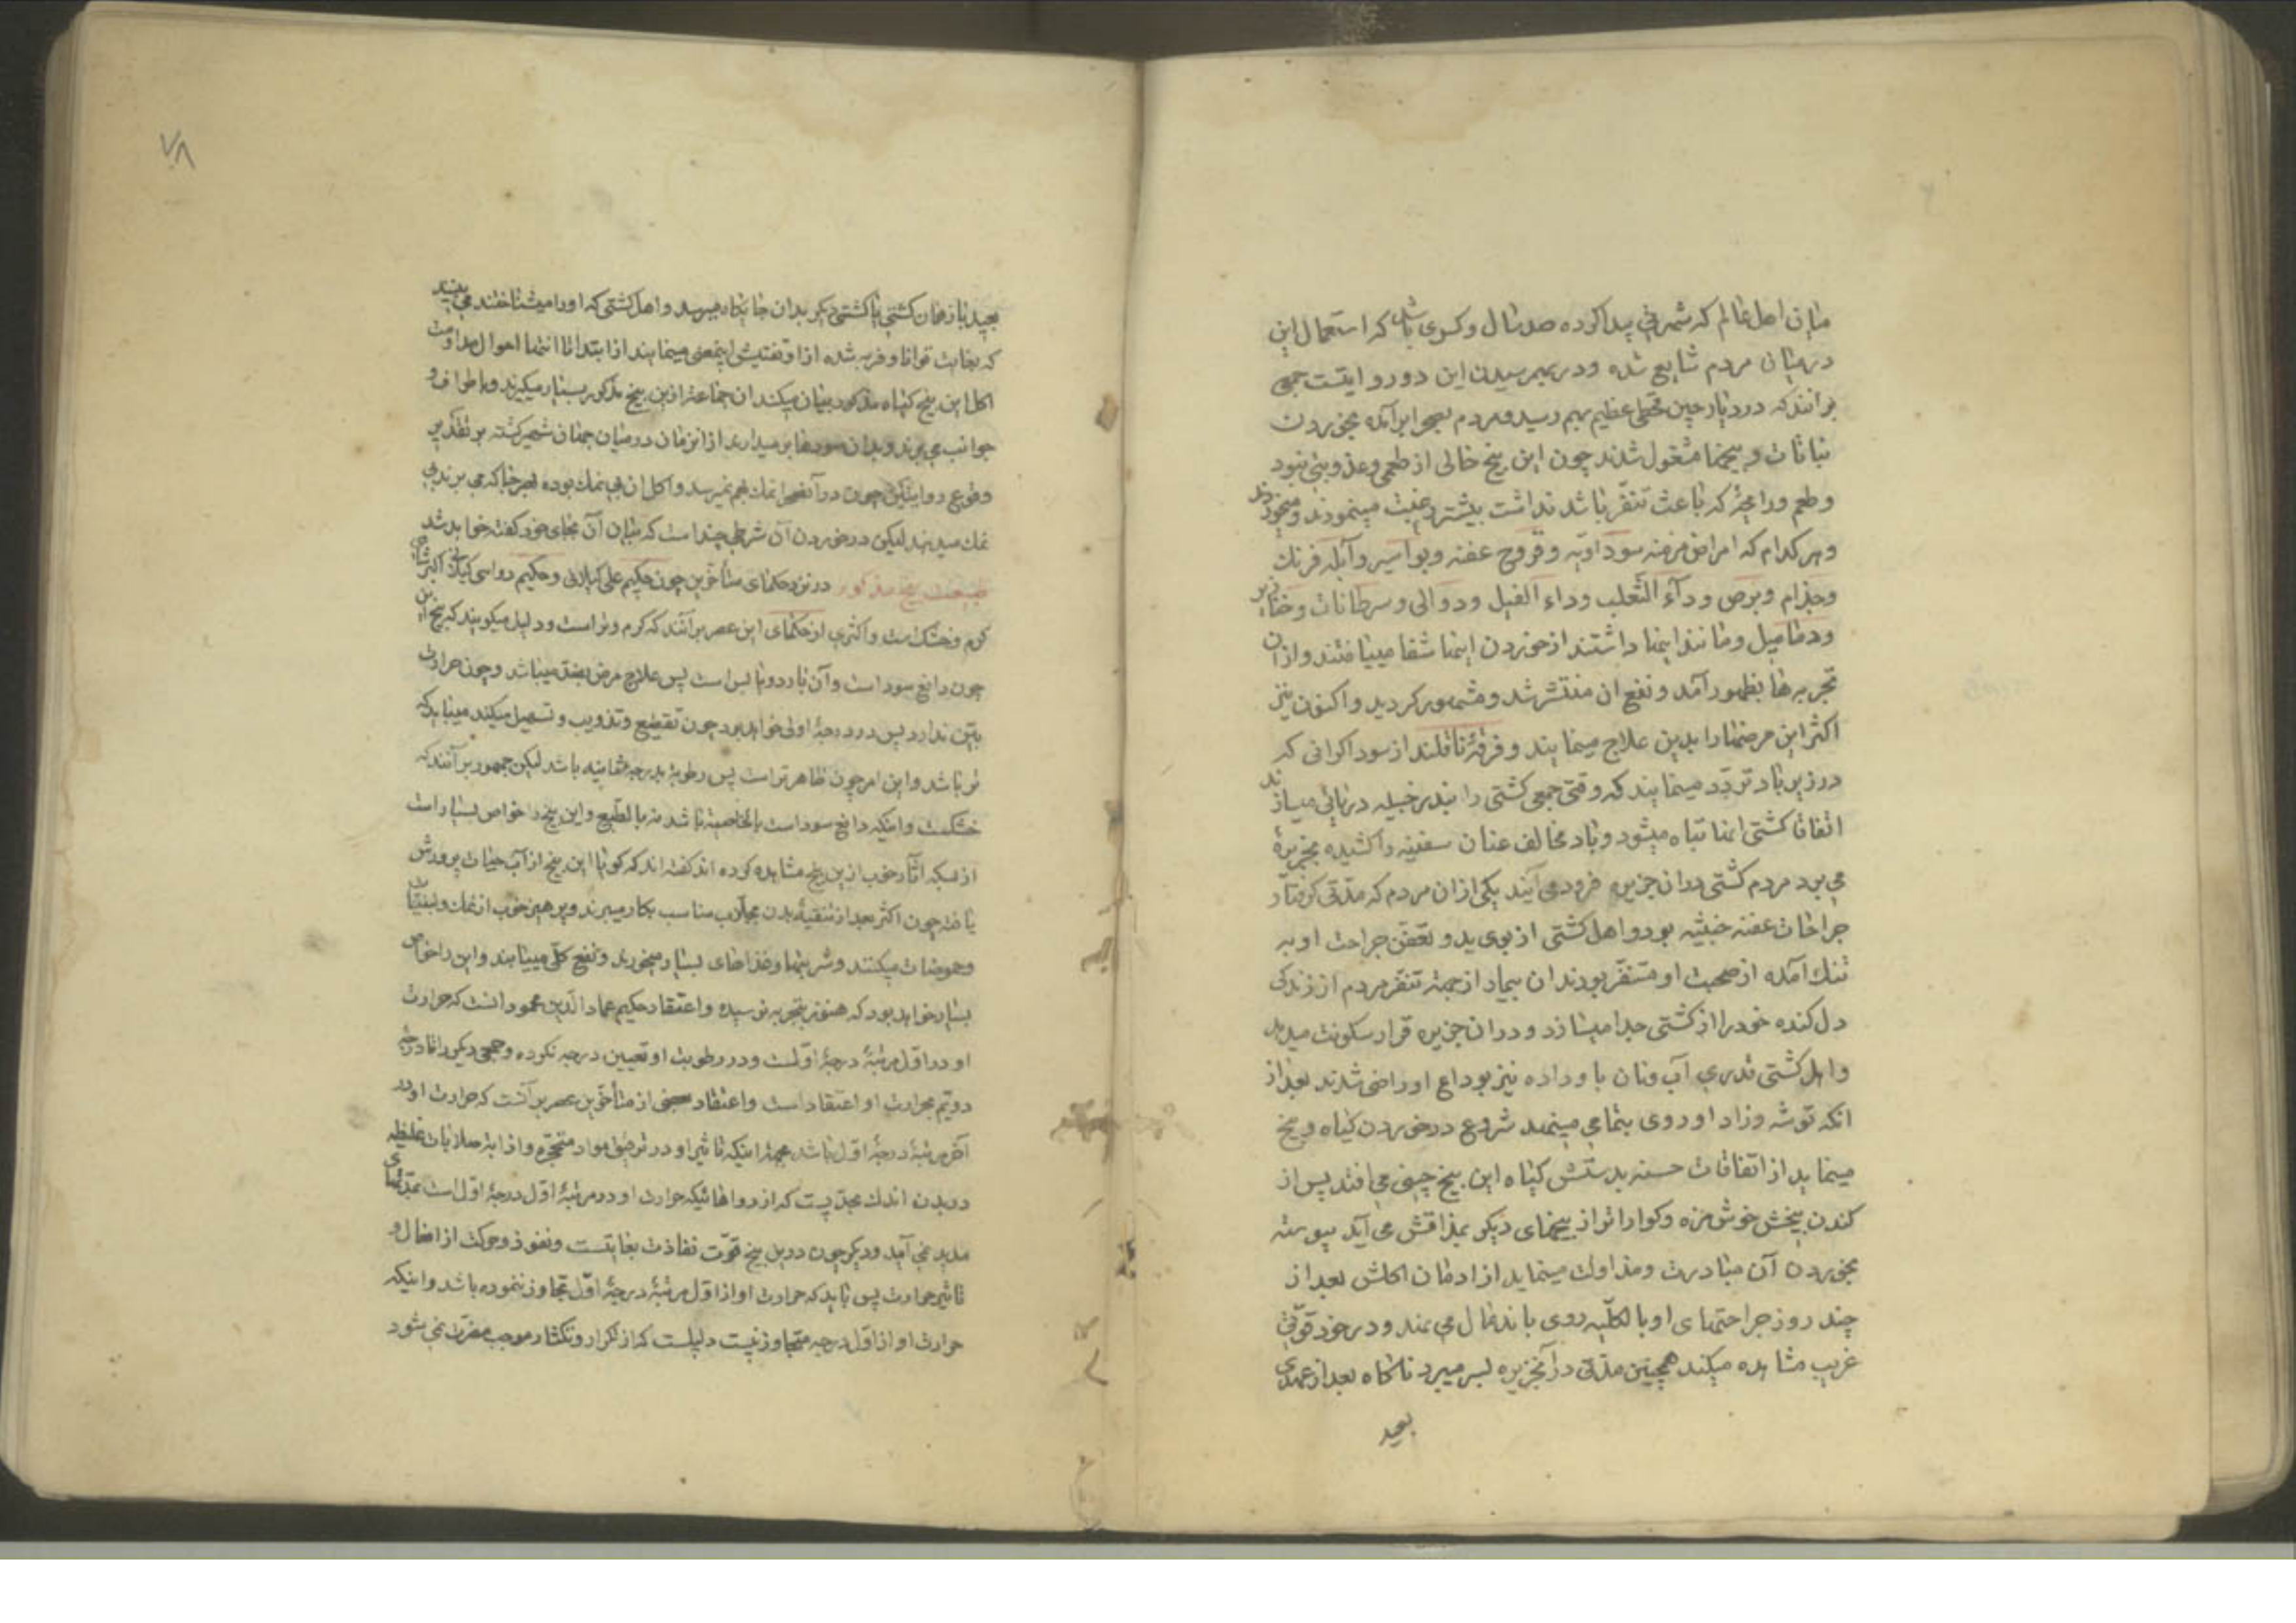 میان اهل عالم که شهرتی پیدا کرده صد سال و کسری باشد که استعمال این
در میان مردم شایع شده و در بهم رسیدن این دو روایتست جمعی
برانند که در دیار چین قحطی عظیم بهم رسید و مردم بصحرا برآمده بخوردن
نباتات و بیخها مشغول شدند چون این بیخ خالی از طعمی و عذوبتی نبود
و طعم و رایحهٔ که باعث تنفّر باشد نداشت بیشتر رغبت مینمودند و میخوردند
و هر کدام که امراض مزمنه سوداویّه و قروح عفنه و بواسیر و آبله فرنک
و جذام و برص و دآء الثّعلب و داء الفیل و دوالی و سرطانات و خنازیر
و دمامیل و مانند اینها داشتند از خوردن اینها شفا مییافتند و از ان
تجربه ها بظهور آمد و نفع ان منتشر شد و مشهور کردید و اکنون نیز
اکثر این مرضها را بدین علاج مینمایند و فرقهٔ ناقلند از سوداکرانی که
در زیرباد تردّد مینمایند که وقتی جمعی کشتی را بندر خیبله دریائی میسازند
اتفاقا کشتی انها تباه میشود و باد مخالف عنان سفینه را کشیده بجزیرهٔ
می برد مردم کشتی دران جزیره فرود می آیند یکی از ان مردم که مدّتی کرفتار
جراحات عفنه خبیثه بود و اهل کشتی از بوی بد و تعفّن جراحت او به
تنک آمده از صحبت او متنفّر بودند ان بیمار از جهة تنفّر مردم از زندکی
دل کنده خود را از کشتی جدا میسازد و دران جزیره قرار سکونت میدهد
و اهل کشتی قدری آب و نان باو داده نیز بوداع او راضی شدند بعد از
انکه توشه و زاد او روی بتمامی مینهد شروع در خوردن کیاه و بیخ
مینماید از اتفاقات حسنه بدستش کیاه این بیخ چینی می افتد پس از
کندن بیخش خوش مزه و کواراتر از بیخهای دیکر بمذاقش می آید پیوسته
بخوردن آن مبادرت و مداومت مینماید از ادمان اکلش بعد از
چند روز جراحتهای او بالکلّیه روی باندمال می نهد و در خود قوّتی
غریب مشاهده میکند همچنین مدّتی در آنجزیره بسر میبرد ناکاه بعد از عهدی
بعید
۷۸
بعید باز همان کشتی یا کشتی دیکر بدان جایکاه میرسد و اهل کشتی که او را میشناختند می بینند
که بغایت توانا و فربه شده از او تفتیش اینمعنی مینمایند از ابتدا تا انتها احوال مداومت
اکل این بیخ کیاه مذکور بیان میکند ان جماعة از این بیخ مذکور بسیار میکیرند و باطراف و
جوانب می برند و بدان سودها بر میدارند از انزمان در میان جهان شهیر کشته بر تقدیر
وقوع روایتین چون در آنصحرا نمک بهم نمیرسد و اکل ان بی نمک بوده بهر جا که می برند بی
نمک میدهند لیکن در خوردن آن شرطی چند است که بیان آن بجای خود کفته خواهد شد
طبیعت بیخ مذکور در نزد حکمای متأخّرین چون حکیم علی کیلانی و حکیم دوایی کیلانی اکبرشاهی
کرم و خشک است و اکثری از حکمای این عصر برآنند که کرم و تر است و دلیل میکویند که بیخ این
چون دافع سودا است و آن بارد و یابس است پس علاج مرض بضد میباشد و چون حرارت
بیّن ندارد پس در درجهٔ اولی خواهد بود چون تقطیع و تذویب و تسهیل میکند میباید که
تر باشد و این امر چون ظاهرتر است پس رطوبة بدرجه ثانیه باشد لیکن جمهور برآنند که
خشکست و اینکه دافع سودا است بالخاصیة باشد نه بالطبع و این بیخ را خواص بسیار است
از بسکه آثار خوب از ین بیخ مشاهده کرده اند کفته اند که کویا این بیخ از آب حیات پرورش
یافته چون اکثر بعد از تنقیهٔ بدن بجلّاب مناسب بکار میبرند و پرهیز خوب از نمک و لبنیّات
و حموضات میکنند و شربتها و غذاهای بسیار میخورند و نفع کلّی مییابند و این را خواص
بسیار خواهد بود که هنوز بتجربه نرسیده و اعتقاد حکیم عماد الدّین محمود انست که حرارت
او در اوّل مرتبهٔ درجهٔ اوّلست و در رطوبت او تعیین درجه نکرده و جمعی دیکر را تا درجهٔ
دویّم بحرارت او اعتقاد است و اعتقاد بعضی از متأخّرین عصر برآنست که حرارت او در
آخر مرتبهٔ درجهٔ اوّل باشد بجهة اینکه تاثیر او در ترقیق مواد متحجّره و اذابهٔ صلابات غلیظه
در بدن اندک بحدّیست که از دواهائیکه حرارت او در مرتبهٔ اوّل درجهٔ اوّل است بمدّتهای
مدید نمی آید و دیکر چون در ین بیخ قوّت نفاذت بغایتست و نفوذ و حرکت از افعال و
تاثیر حرارت پس باید که حرارت او از اوّل مرتبهٔ درجهٔ اوّل تجاوز ننموده باشد و اینکه
حرارت او از اوّل درجه متجاوز نیست دلیلست که از تکرار و تکثار موجب مضرّت نمی شود